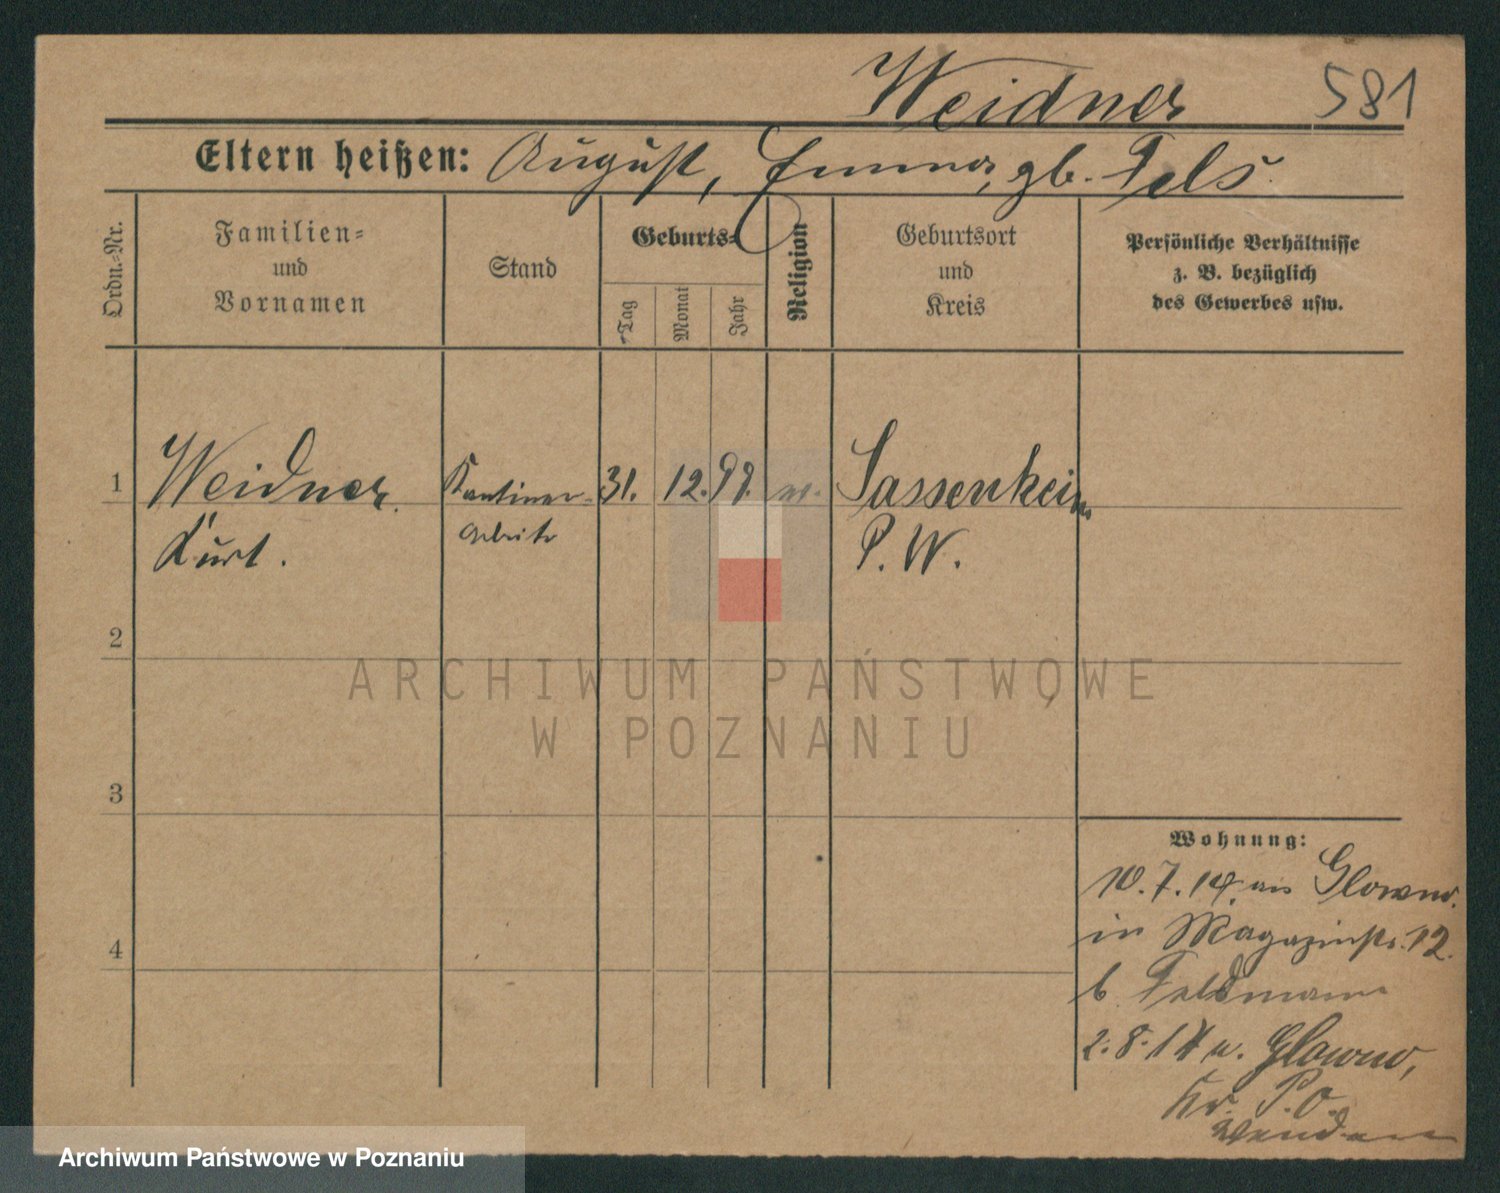 Weidner 581
Eltern heißen: August, Emma, gb. Fels.
Ordn.-Nr.
Familien-
und
Vornamen
Stand
Geburts-
Tag
Monat
Jahr
Religion
Geburtsort
und
Kreis
Persönliche Verhältnisse
z. B. bezüglich
des Gewerbes usw.
1 Weidner 31. 12. 98. Sassenheim
Kurt. P. W.
2
3
4
Wohnung:
10.7.14 aus Glowno.
in Magazinstr. 12.
b. Feldmann
2.8.14 n. Glowno,
Kr. P.O.
ARCHIWUM PAŃSTWOWE
W POZNANIU
Archiwum Państwowe w Poznaniu